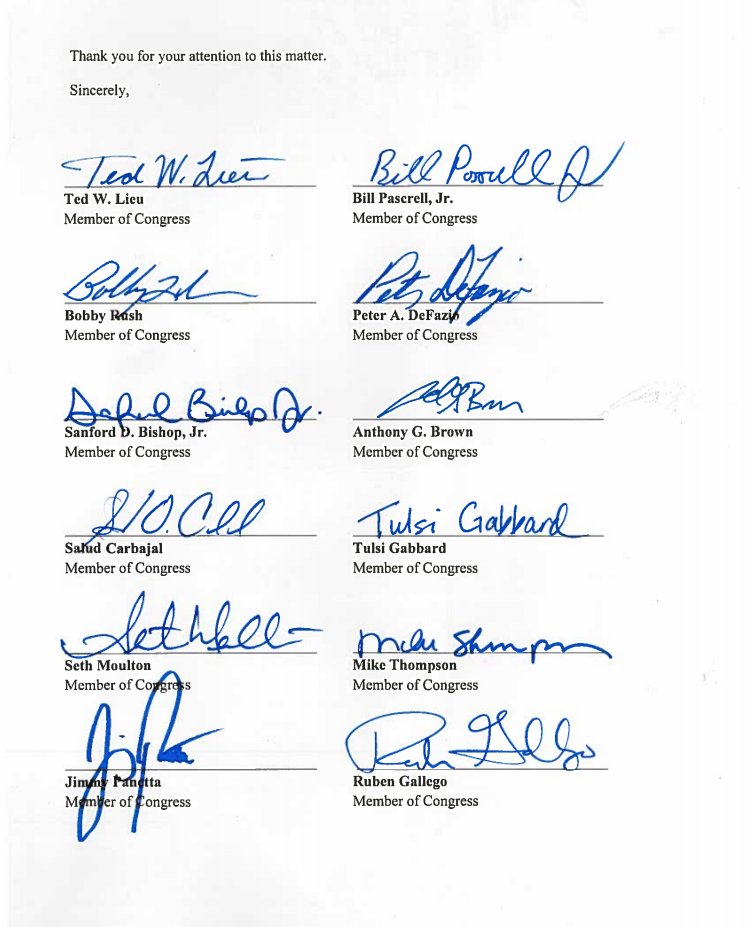 Thank you for your attention to this matter.
Sincerely,
Ted W. Lieu
Bill Pascrell Jr
Ted W. Lieu
Bill Pascrell, Jr.
Member of Congress
Member of Congress
Bobby Rush
Peter A. DeFazio
Member of Congress
Member of Congress
Peter DeFazio
Sanford D. Bishop, Jr.
Anthony G. Brown
Member of Congress
Member of Congress
Tulsi Gabbard
Salud Carbajal
Tulsi Gabbard
Member of Congress
Member of Congress
Seth Moulton
Mike Thompson
Member of Congress
Member of Congress
Jimmy Panetta
Ruben Gallego
Member of Congress
Member of Congress